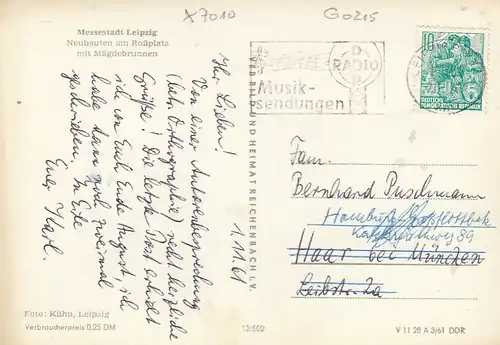 X7010
G0215
Messestadt Leipzig
Neubauten am Roßplatz
mit Mägdebrunnen
RADIO
DDR
Musik-
sendungen
10
5
DEUTSCHE
DEMOKRATISCHE REPUBLIK
Ihr Lieben!
Von einer Autorenbesprechung
(betr. Orthographie) recht herzliche
Grüße! Die letzte Post erhielt
ich von Euch Ende August, ich
habe dann noch zweimal
geschrieben. In Eile
Euer Karl.
1.11.61
VEB BILD UND HEIMAT REICHENBACH I. V.
Fam.
Bernhard Puschmann
Hamburg
39
Haar bei München
Leibstr. 2a
Foto: Kühn, Leipzig
Verbraucherpreis 0,25 DM
13/502
V 11 28 A 3/61 DDR